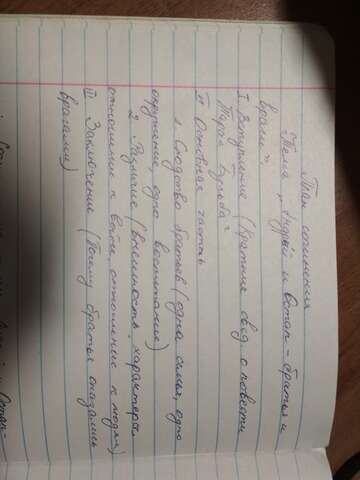 План сочинения
Тема "Андрий и Остап - братья и
враги".
I. Вступление (краткие свед. о повести
"Тарас Бульба"
II Основная часть
1. Сходство братьев (одна семья, одно
окружение, одно воспитание)
2. Различие (внешность, характеры,
отношение к войне, отношение к людям)
III Заключение (Почему братья оказались
врагами)